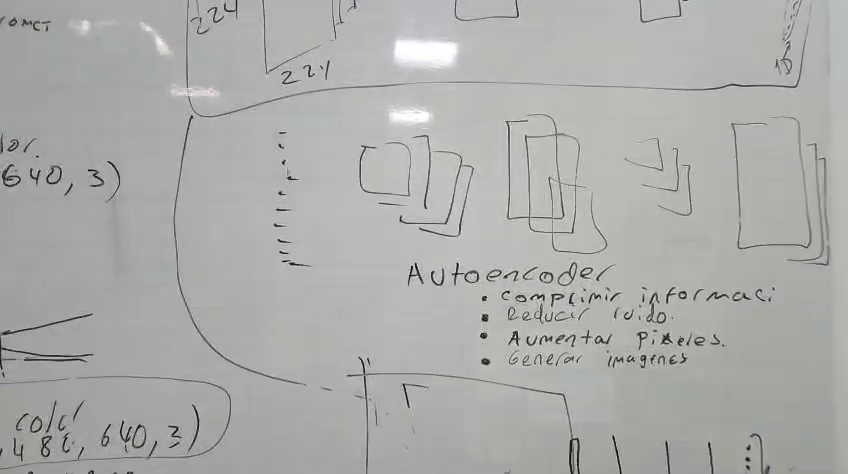 224
224
640, 3)
Autoencoder
• Comprimir informaci
• Reducir ruido.
• Aumentar pixeles.
• Generar imagenes
color
480, 640, 3)